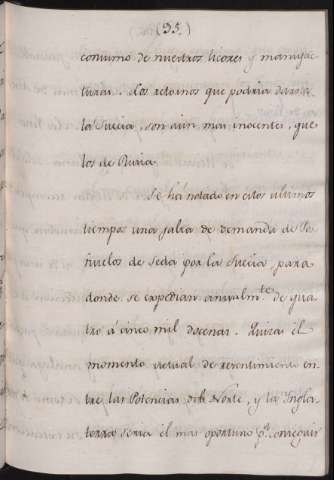 (95.)
consumo de nuestros licores y manufac
turas. Los retornos que podria darnos
la Suecia, son aún mas inocentes, que
los de Rusia.
Se há notado en estos ultimos
tiempos una falta de demanda de Pa
ñuelos de seda por la Suecia, para
donde se expedian anualm.te de qua
tro á cinco mil docenas. Quizas el
momento actual de resentimiento en
tre las Potencias del Norte, y la Ingla
terra seria el mas oportuno p.a conseguir